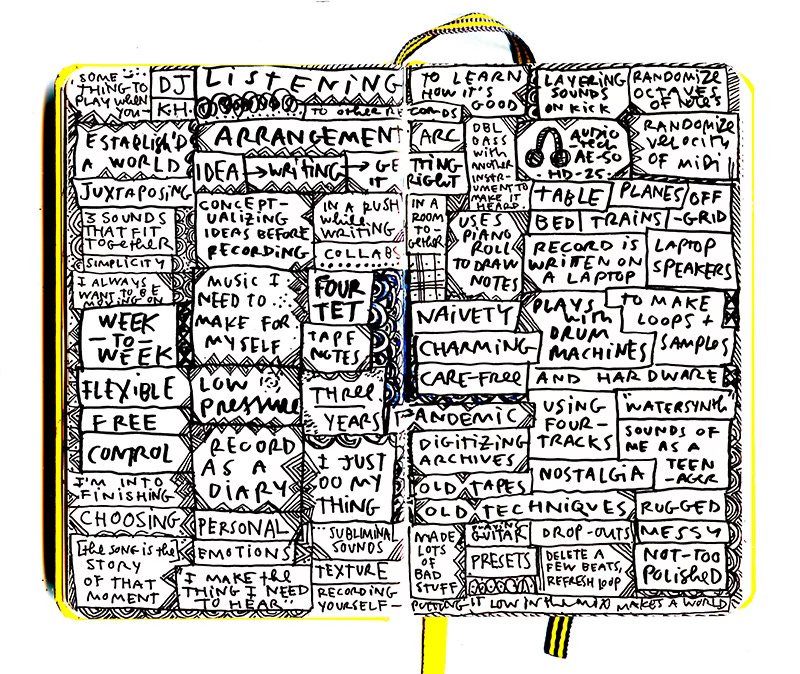 SOME
THING TO
PLAY when
YOU—
DJ
K.H.
LISTENING
to other RE
CORDS
TO LEARN
HOW IT'S
GOOD
LAYERING
SOUNDS
ON KICK
RANDOMIZE
OCTAVES
OF NOTES
ESTABLISH'D
A WORLD
ARRANGEMENT
ARC
DBL
BASS
with
ANOTHER
INSTR-
UMENT TO
MAKE IT
HEARD
AUDIO
-tech
AE-50
HD-25-
RANDOMIZE
VELOCITY
OF MIDI
IDEA
→WRITING
→GE
IT
THING
RIGHT
JUXTAPOSING
3 SOUNDS
THAT FIT
TOGETHER
SIMPLICITY
CONCEPT-
UALIZING
IDEAS BEFORE
RECORDING
IN A RUSH
while
WRITING
COLLABS
IN A
ROOM
TO-
GETHER
USES
PIANO
ROLL
TO DRAW
NOTES
TABLE
PLANES
OFF
-GRID
BED
TRAINS
RECORD IS
WRITTEN ON
A LAPTOP
LAPTOP
SPEAKERS
I ALWAYS
WANT TO BE
MOVING ON
WEEK
—TO—
WEEK
MUSIC I
NEED TO
MAKE FOR
MYSELF
FOUR
TET
TAPE
NOTES
NAIVETY
CHARMING
CARE-FREE
PLAYS
with
DRUM
MACHINES
TO MAKE
LOOPS +
SAMPLES
AND HARDWARE
FLEXIBLE
FREE
CONTROL
LOW
PRESSURE
THREE
YEARS
PANDEMIC
DIGITIZING
ARCHIVES
USING
FOUR-
TRACKS
"WATERSYNTH"
SOUNDS OF
ME AS A
TEEN
-AGER
I'M INTO
FINISHING
RECORD
AS A
DIARY
I JUST
DO MY
THING
OLD TAPES
NOSTALGIA
OLD TECHNIQUES
RUGGED
CHOOSING
PERSONAL
EMOTIONS
"SUBLIMINAL
SOUNDS
MADE
LOTS
OF
BAD
STUFF
PLAYING
GUITAR
DROP-OUTS
MESSY
[the SONG is the
STORY
OF THAT
MOMENT
"I MAKE the
THING I NEED
TO HEAR"
TEXTURE
RECORDING
YOURSELF—
PRESETS
DELETE A
FEW BEATS,
REFRESH LOOP
NOT-TOO
POLISHED
PUTTING IT LOW IN the MIX MAKES A WORLD